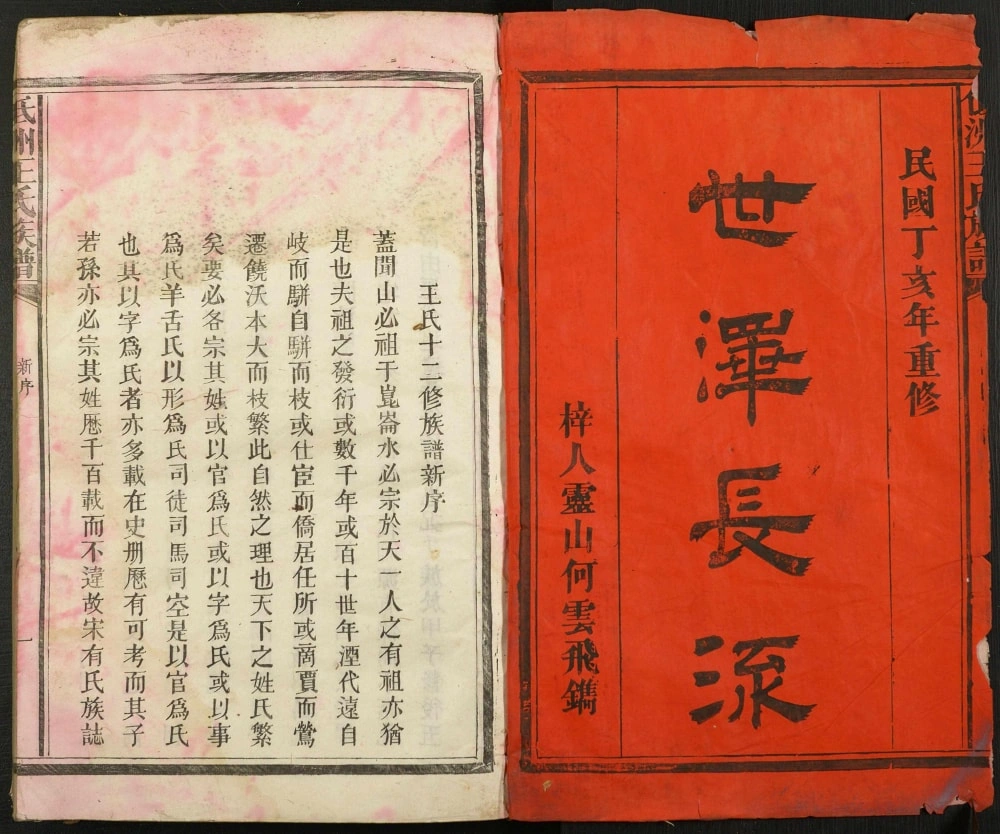 民國丁亥年重修
世澤長流
梓人靈山何雲飛鐫
王氏十二修族譜新序
蓋聞山必祖于崑崙水必宗於天一人之有祖亦猶
是也夫祖之發衍或數千年或百十世年湮代遠自
岐而駢自駢而枝或仕宦而僑居任所或啇賈而鶯
遷饒沃本大而枝繁此自然之理也天下之姓氏繁
矣要必各宗其姓或以官爲氏或以字爲氏或以事
爲氏羊舌氏以形爲氏司徒司馬司空是以官爲氏
也其以字爲氏者亦多載在史册厯有可考而其子
若孫亦必宗其姓厯千百載而不違故宋有氏族誌
王氏族譜
新序
一